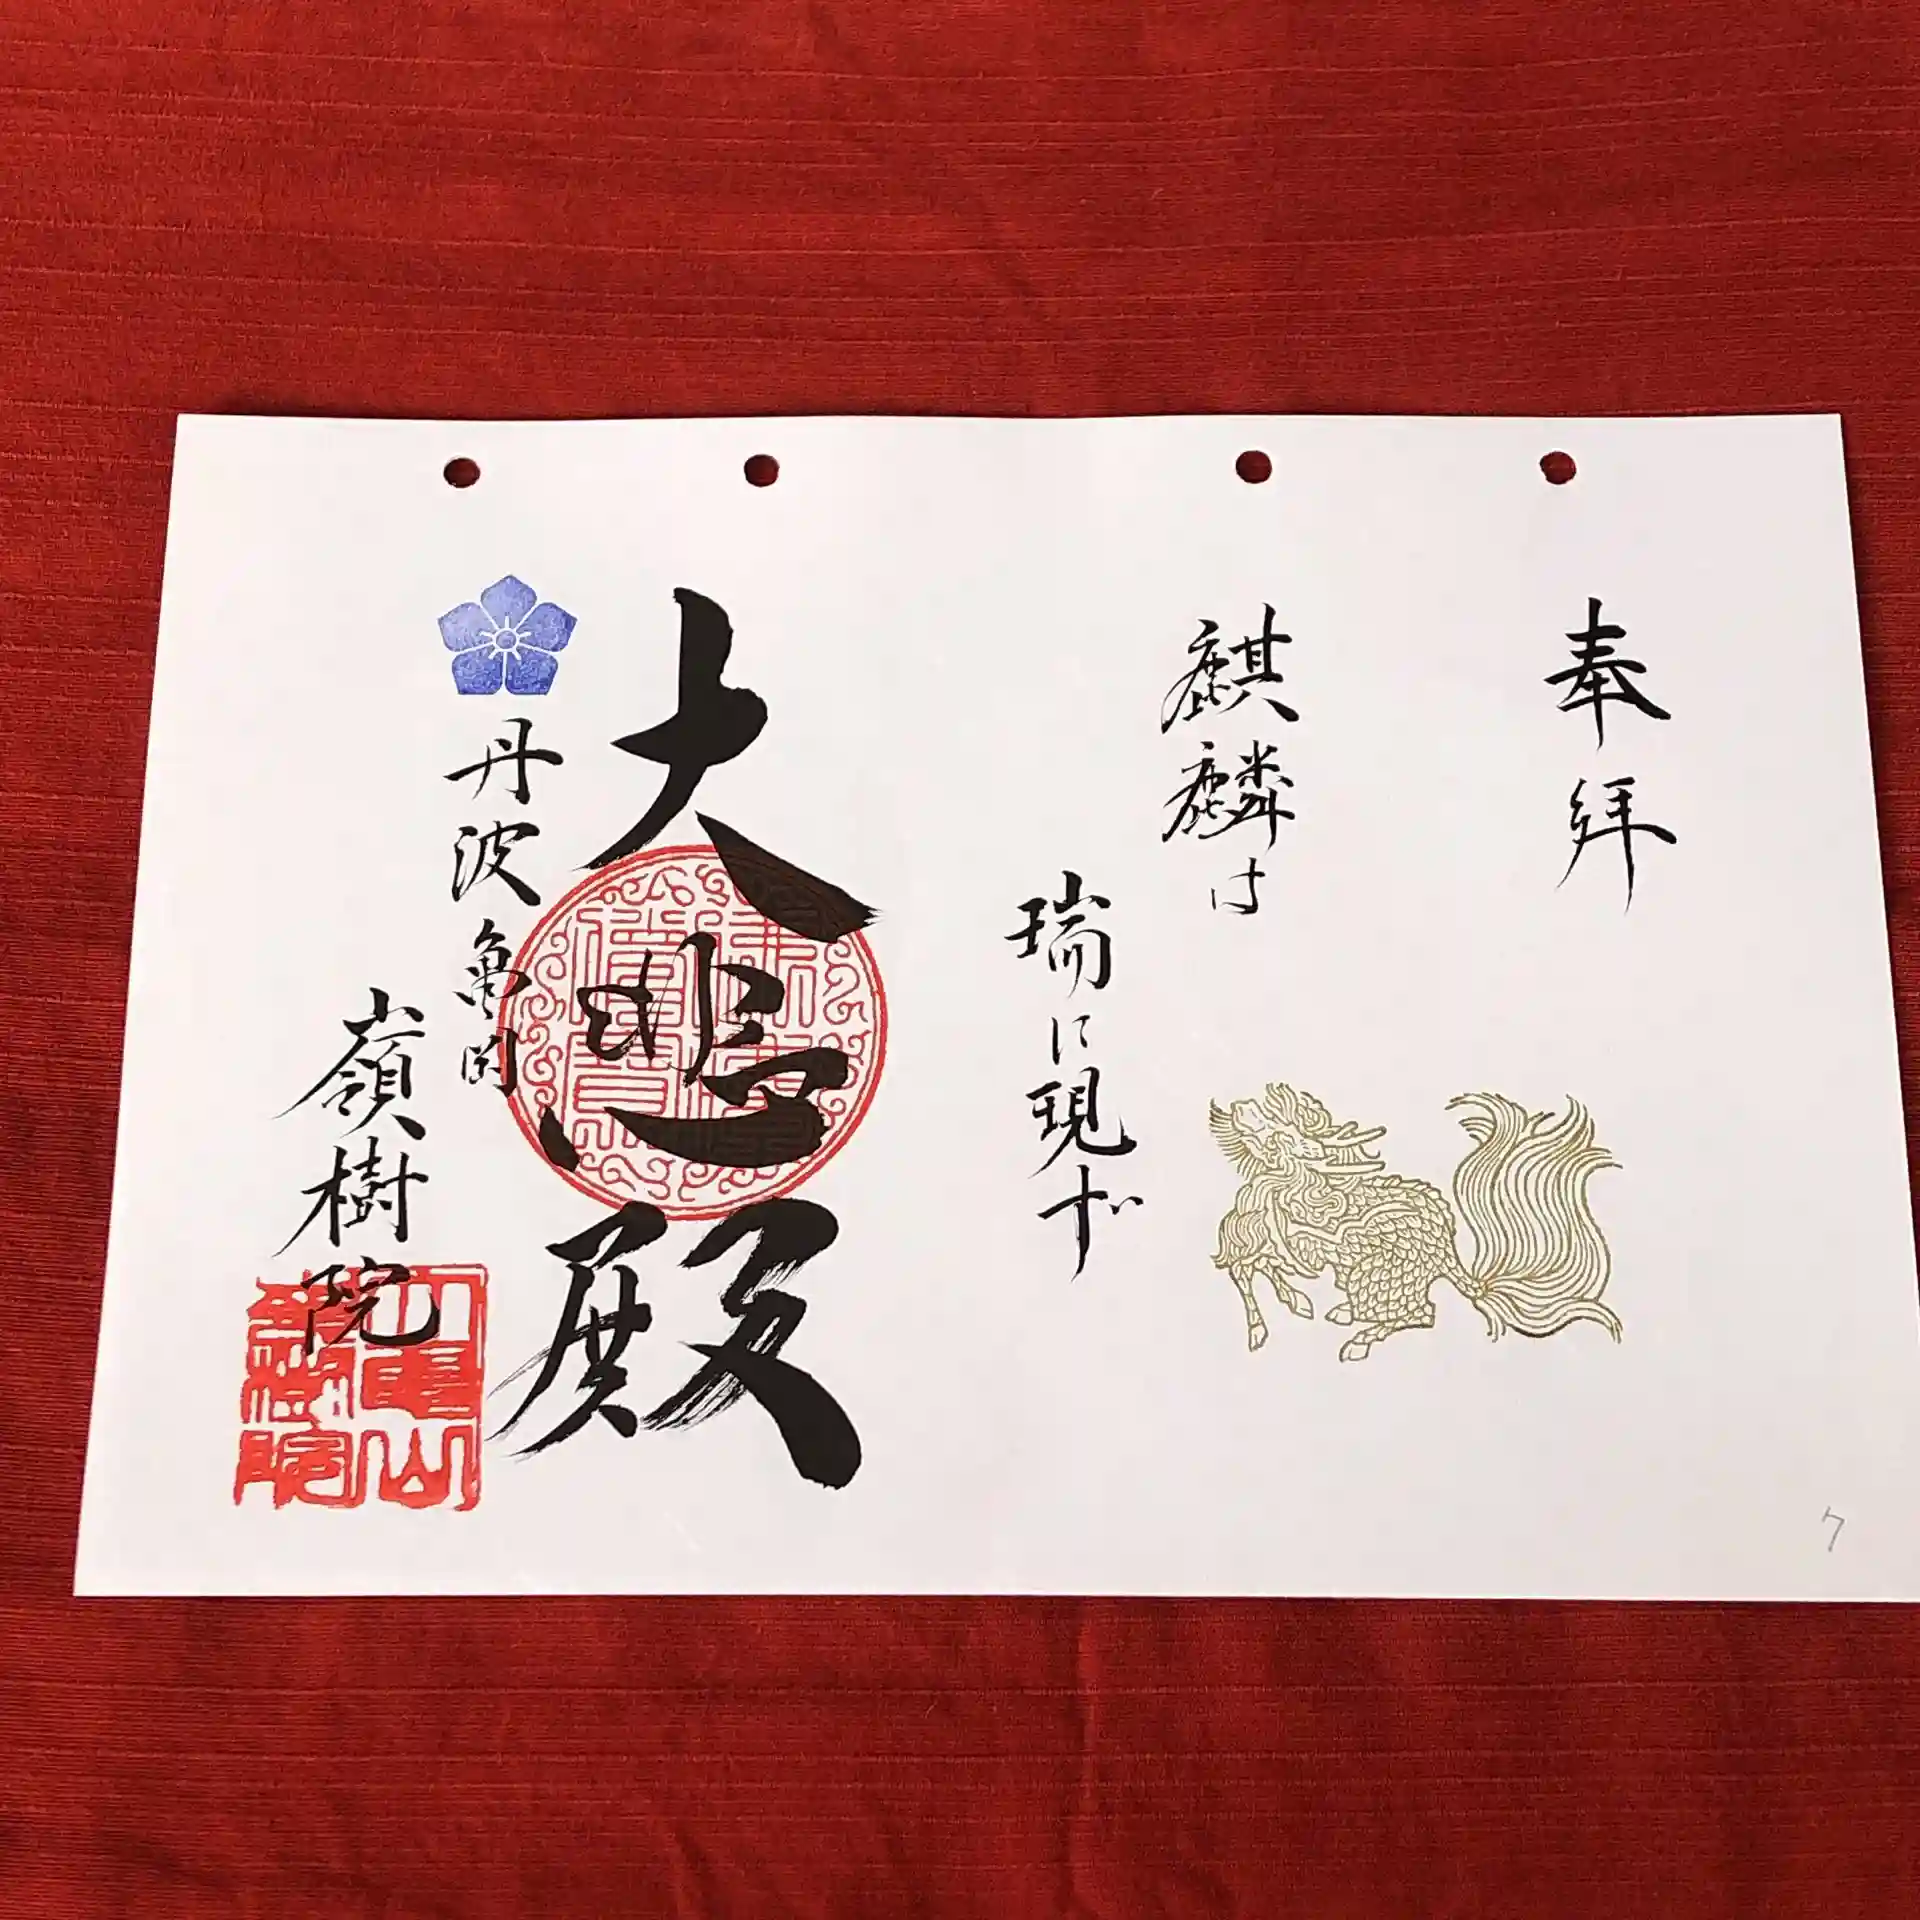 奉拝
麒麟は
瑞に現す
大悲殿
丹波亀岡
嶺樹院
7